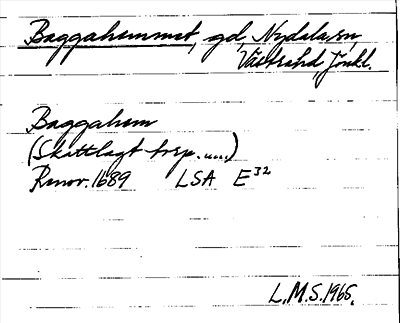 Baggahemmet, gd, Nydala sn,
Västra hd, Jönkl.
Baggahem
(Skattlagt torp ......)
Renov. 1689 LSA E32
L.M.S. 1965.